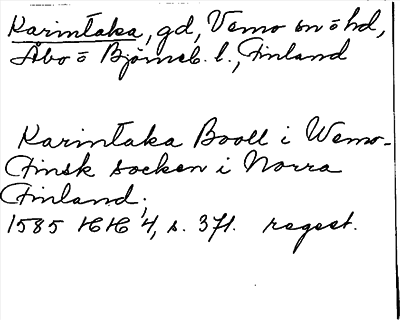 Karintaka, gd, Vemo sn o hd,
Åbo o Björneb. l., Finland
Karintaka Booll i Wemo-
Finsk socken i Norra
Finland,
1585 HH 4, s. 371. regest.